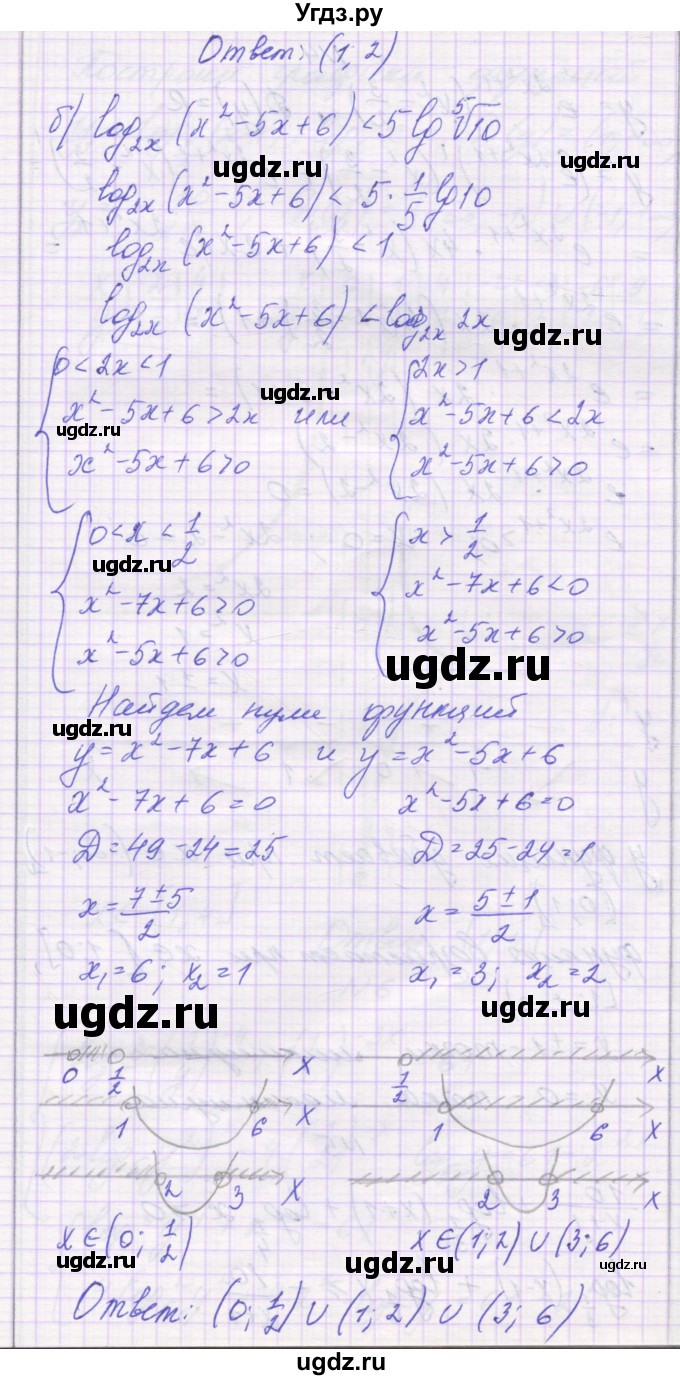 Угдз.ру
Ответ: (1, 2)
б) log₂ₓ (x² - 5x + 6) < 5 lg ⁵√10
ugdz.ru ugdz.ru
log₂ₓ (x² - 5x + 6) < 5 · 1/5 lg 10
log₂ₓ (x² - 5x + 6) < 1
log₂ₓ (x² - 5x + 6) < log₂ₓ 2x
ugdz.ru
{ 0 < 2x < 1 { 2x > 1
ugdz.ru
x² - 5x + 6 > 2x или x² - 5x + 6 < 2x
ugdz.ru
x² - 5x + 6 > 0 x² - 5x + 6 > 0
{ 0 < x < 1/2 { x > 1/2
ugdz.ru
x² - 7x + 6 > 0 x² - 7x + 6 < 0
x² - 5x + 6 > 0 x² - 5x + 6 > 0
ugdz.ru
Найдем нули функций
ugdz.ru
y = x² - 7x + 6 и y = x² - 5x + 6
x² - 7x + 6 = 0 x² - 5x + 6 = 0
Д = 49 - 24 = 25 Д = 25 - 24 = 1
x = (7 ± 5)/2 x = (5 ± 1)/2
x₁ = 6; x₂ = 1 x₁ = 3; x₂ = 2
ugdz.ru ugdz.ru
0 1/2 x 1/2 x
1 6 x 1 6 x
2 3 x 2 3 x
x ∈ (0; 1/2) x ∈ (1; 2) ∪ (3; 6)
ugdz.ru ugdz.ru
Ответ: (0; 1/2) ∪ (1; 2) ∪ (3; 6)
ugdz.ru